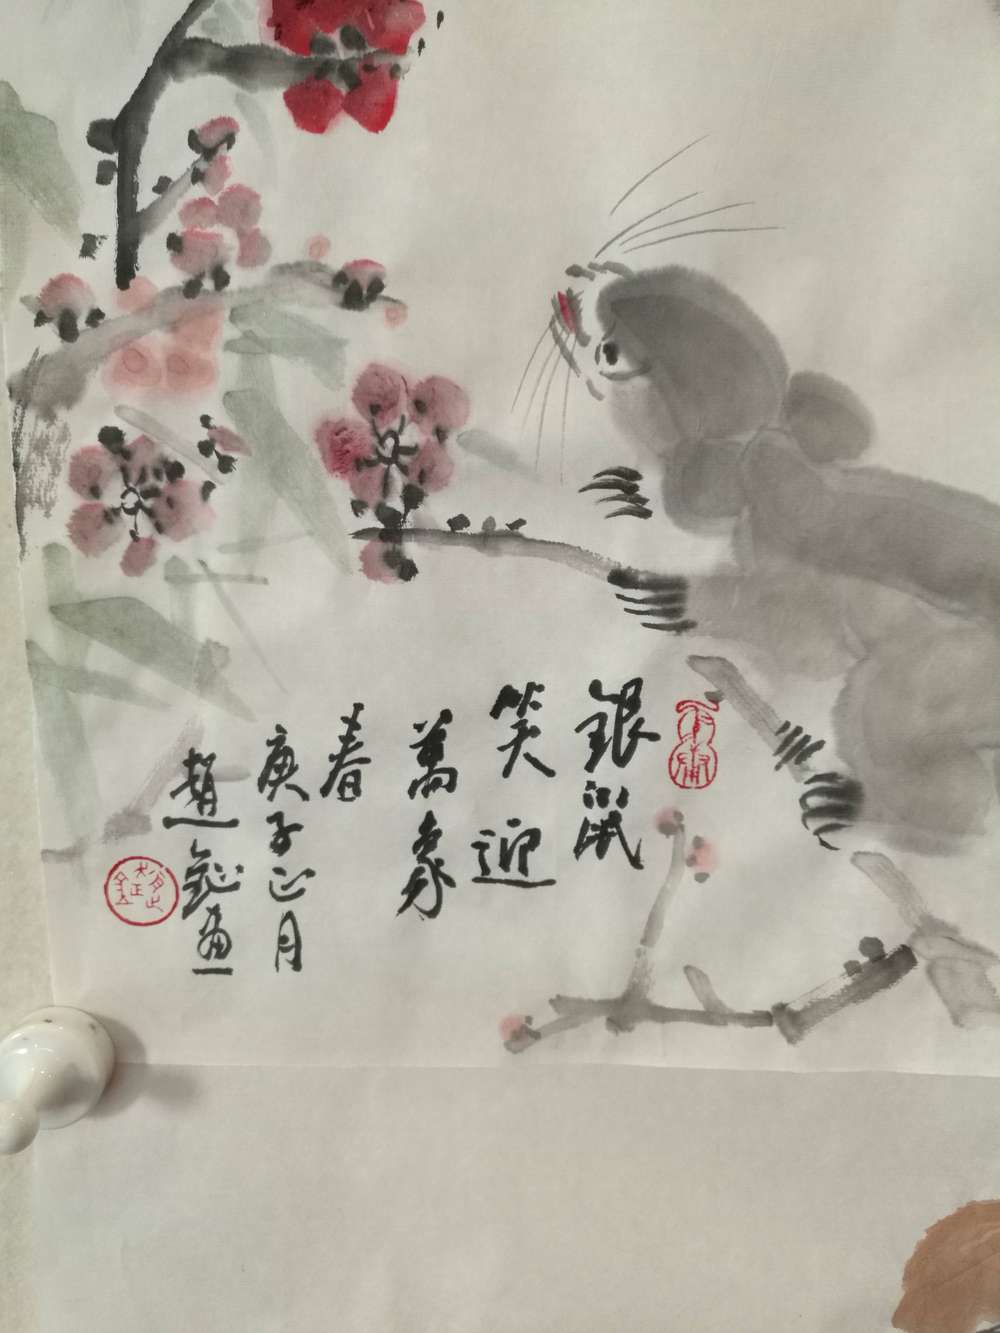 銀鼠
笑迎
萬象
春
庚子正月
趙